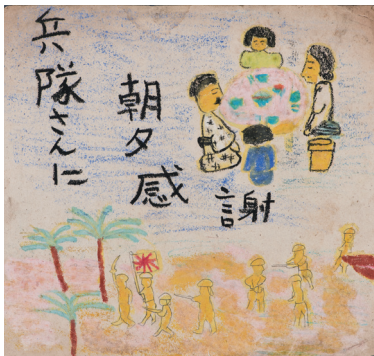 兵隊さんに
朝夕感
謝